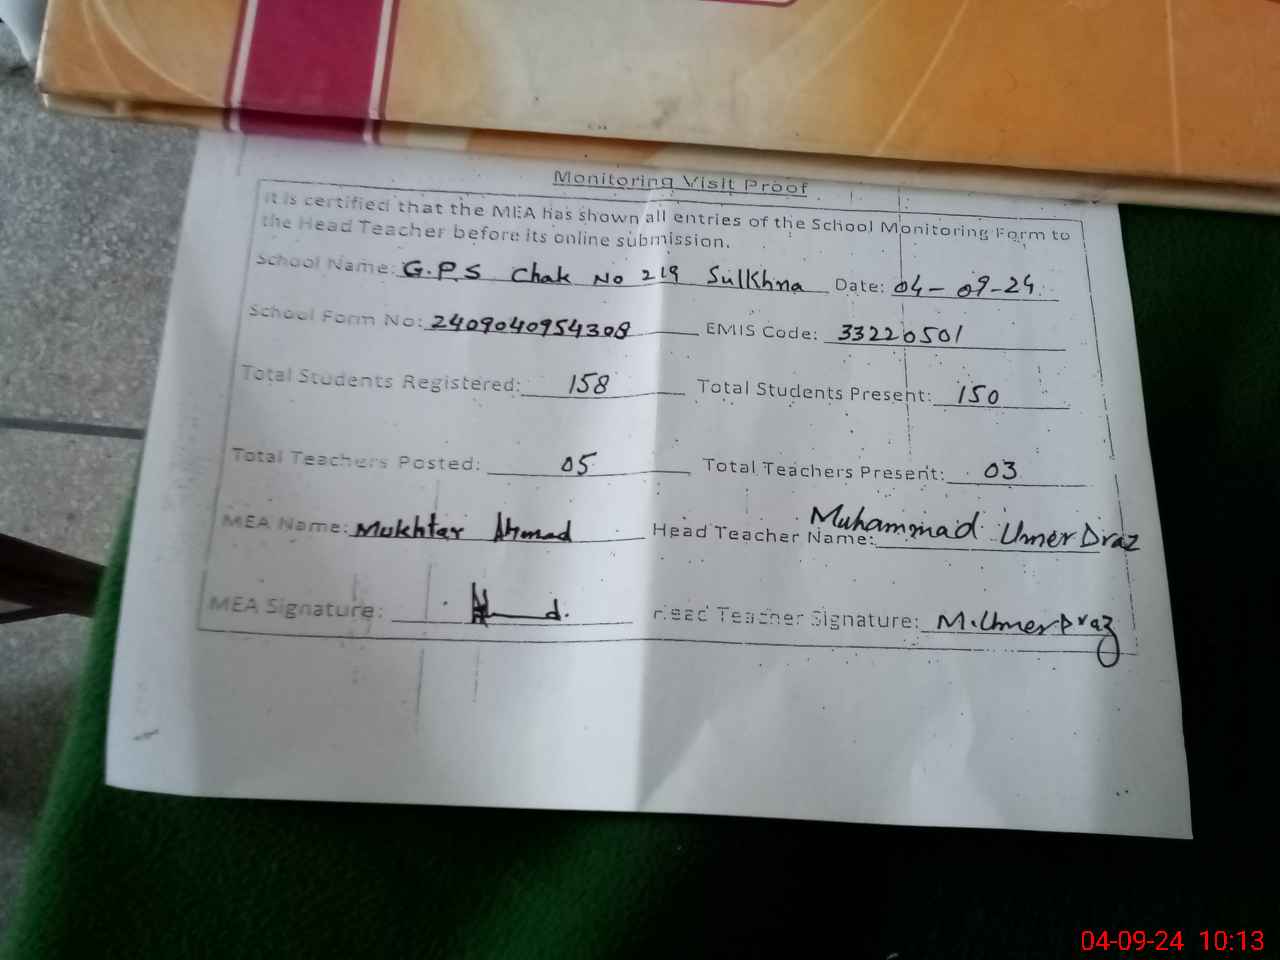 Monitoring Visit Proof
It is certified that the MEA has shown all entries of the School Monitoring Form to
the Head Teacher before its online submission.
School Name: G.P.S Chak No 219 Sulkhna Date: 04-09-24
School Form No: 2409040954308 EMIS Code: 33220501
Total Students Registered: 158 Total Students Present: 150
Total Teachers Posted: 05 Total Teachers Present: 03
MEA Name: Mukhtar Ahmad Head Teacher Name: Muhammad Umer Draz
MEA Signature: Head Teacher Signature: M.Umer Draz
04-09-24 10:13